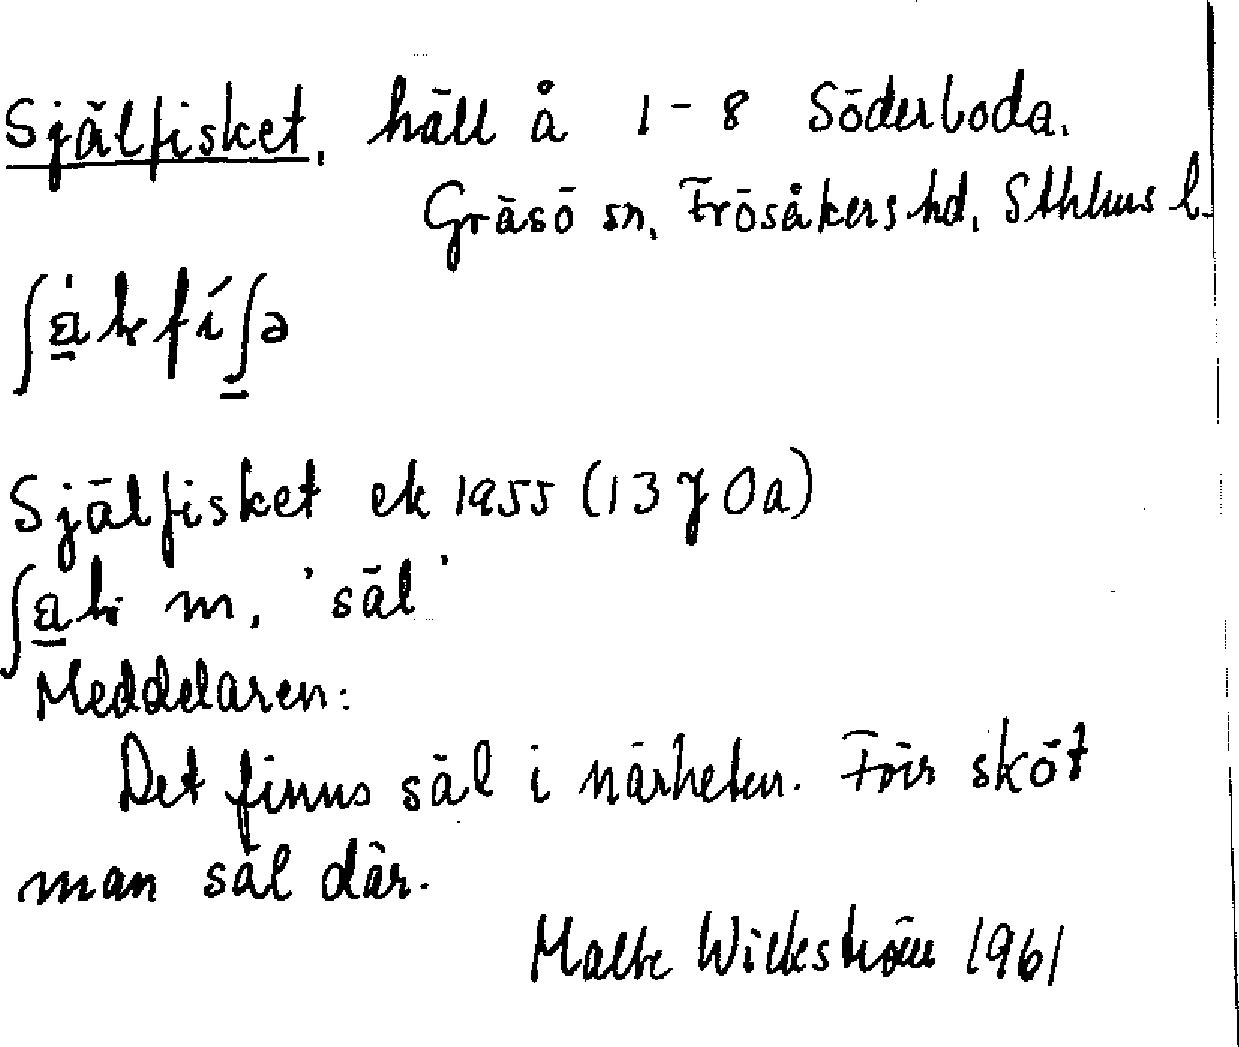 Själfisket, häll å 1-8 Söderboda.
Gräsö sn, Frösåkers hd, Sthlms l.
Själfisket ek 1955 (13 7 0a)
m, 'säl'
Meddelaren:
Det finns säl i närheten. Förr sköt
man säl där.
Malte Wilkström 1961